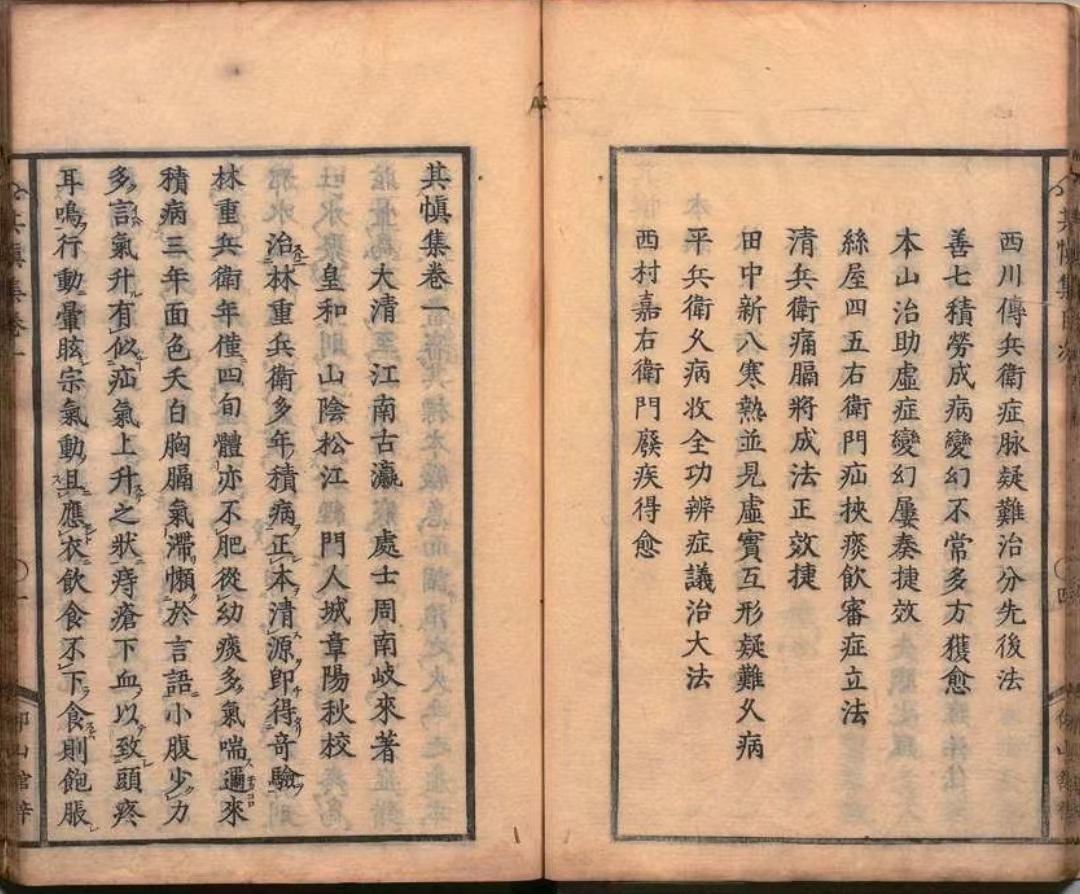 西川傳兵衛症脉疑難治分先後法
善七積勞成病變幻不常多方獲愈
本山治助虛症變幻屢奏捷效
絲屋四五右衛門疝挾痰飲審症立法
清兵衛痛膈將成法正效捷
田中新八寒熱並見虛實互形疑難久病
平兵衛久病收全功辨症議治大法
西村嘉右衛門廢疾得愈
其慎集卷一
大清 江南古瀛 處士周南岐來著
皇和 山陰松江 門人城章陽秋校
治林重兵衛多年積病正本清源卽得奇驗
林重兵衛年僅四旬體亦不肥從幼痰多氣喘邇來
積病三年面色夭白胸膈氣滯懶於言語小腹少力
多言氣升有似疝氣上升之狀痔瘡下血以致頭疼
耳鳴行動暈眩宗氣動且應衣飲食不下食則飽脹
其慎集卷一